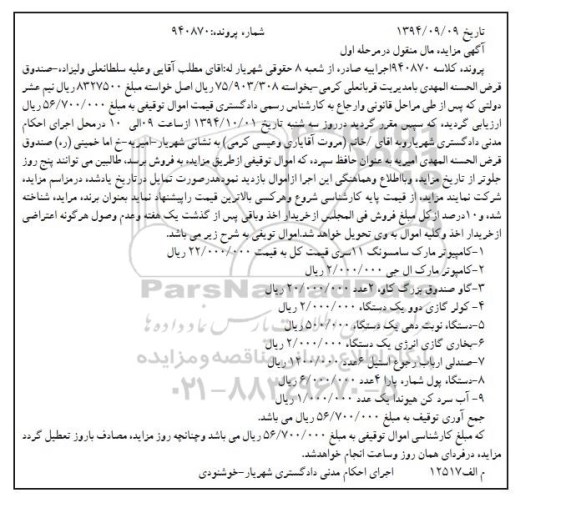 تاریخ ۱۳۹۴/۰۹/۰۹ شماره پرونده:۹۴۰۸۷۰
آگهی مزایده مال منقول درمرحله اول
پرونده کلاسه ۹۴۰۸۷۰اجراییه صادره از شعبه ۸ حقوقی شهریار له:اقای مطلب آقایی وعلیه سلطانعلی ولیزاده-صندوق
قرض الحسنه المهدی بامدیریت قربانعلی کرمی-بخواسته ۷۵/۹۰۳/۳۰۸ ریال اصل خواسته مبلغ ۸۳۲۷۵۰۰ ریال نیم عشر
دولتی که پس از طی مراحل قانونی وارجاع به کارشناس رسمی دادگستری قیمت اموال توقیفی به مبلغ ۵۶/۷۰۰/۰۰۰ ریال
ارزیابی گردیده که سپس مقرر گردید درروز سه شنبه تاریخ ۱۳۹۴/۱۰/۰۱ ازساعت ۰۹الی ۱۰ درمحل اجرای احکام
مدنی دادگستری شهریاروبه اقای /خانم (مروت آقایاری وعیسی کرمی) به نشانی شهریار-امیریه-خ اما خمینی (ره) صندوق
قرض الحسنه المهدی امیریه به عنوان حافظ سپرده که اموال توقیفی ازطریق مزایده به فروش برسد، طالبین می توانند پنج روز
جلوتر از تاریخ مزایده وبااطلاع وهماهنگی این اجرا ازاموال بازدید نمودهدرصورت تمایل درتاریخ یادشده درمراسم مزایده
شرکت نمایند مزایده از قیمت پایه کارشناسی شروع وهرکسی بالاترین قیمت راپیشنهاد نماید بعنوان برنده مزایده شناخته
شده و۱۰درصد ازکل مبلغ فروش فی المجلس ازخریدار اخذ وباقی پس از گذشت یک هفته وعدم وصول هرگونه اعتراضی
ازخریدار اخذ وکلیه اموال به وی تحویل خواهد شد.اموال تویفی به شرح زیر می باشد.
۱-کامپیوتر مارک سامسونگ ۱۱سری قیمت کل به قیمت ۲۲/۰۰۰/۰۰۰ ریال
۲-کامپوتر مارک ال جی ۲/۰۰۰/۰۰۰ ریال
۳-گاو صندوق بزرگ کاوه ۲عدد ۲۰/۰۰۰/۰۰۰ ریال
۴- کولر گازی دوو یک دستگاه ۲/۰۰۰/۰۰۰ ریال
۵-دستگاه نوبت دهی یک دستگاه ۵۰۰/۰۰۰ ریال
۶-بخاری گازی انرژی یک دستگاه ۲/۰۰۰/۰۰۰ ریال
۷-صندلی ارباب رجوع استیل ۶عدد ۱۲۰۰/۰۰۰ ریال
۸-دستگاه پول شمار پارا ۴عدد ۶/۰۰۰/۰۰۰ ریال
۹- آب سرد کن هیوندا یک عدد ۱/۰۰۰/۰۰۰ ریال
جمع آوری توقیف به مبلغ ۵۶/۷۰۰/۰۰۰ ریال می باشد.
که مبلغ کارشناسی اموال توقیفی به مبلغ ۵۶/۷۰۰/۰۰۰ ریال می باشد وچنانچه روز مزایده مصادف باروز تعطیل گردد
مزایده درفردای همان روز وساعت انجام خواهدشد.
م الف۱۲۵۱۷ اجرای احکام مدنی دادگستری شهریار-خوشنودی
ParsNamadData
۰۲۱-۸۸۳۴۹۶۷۰-۵